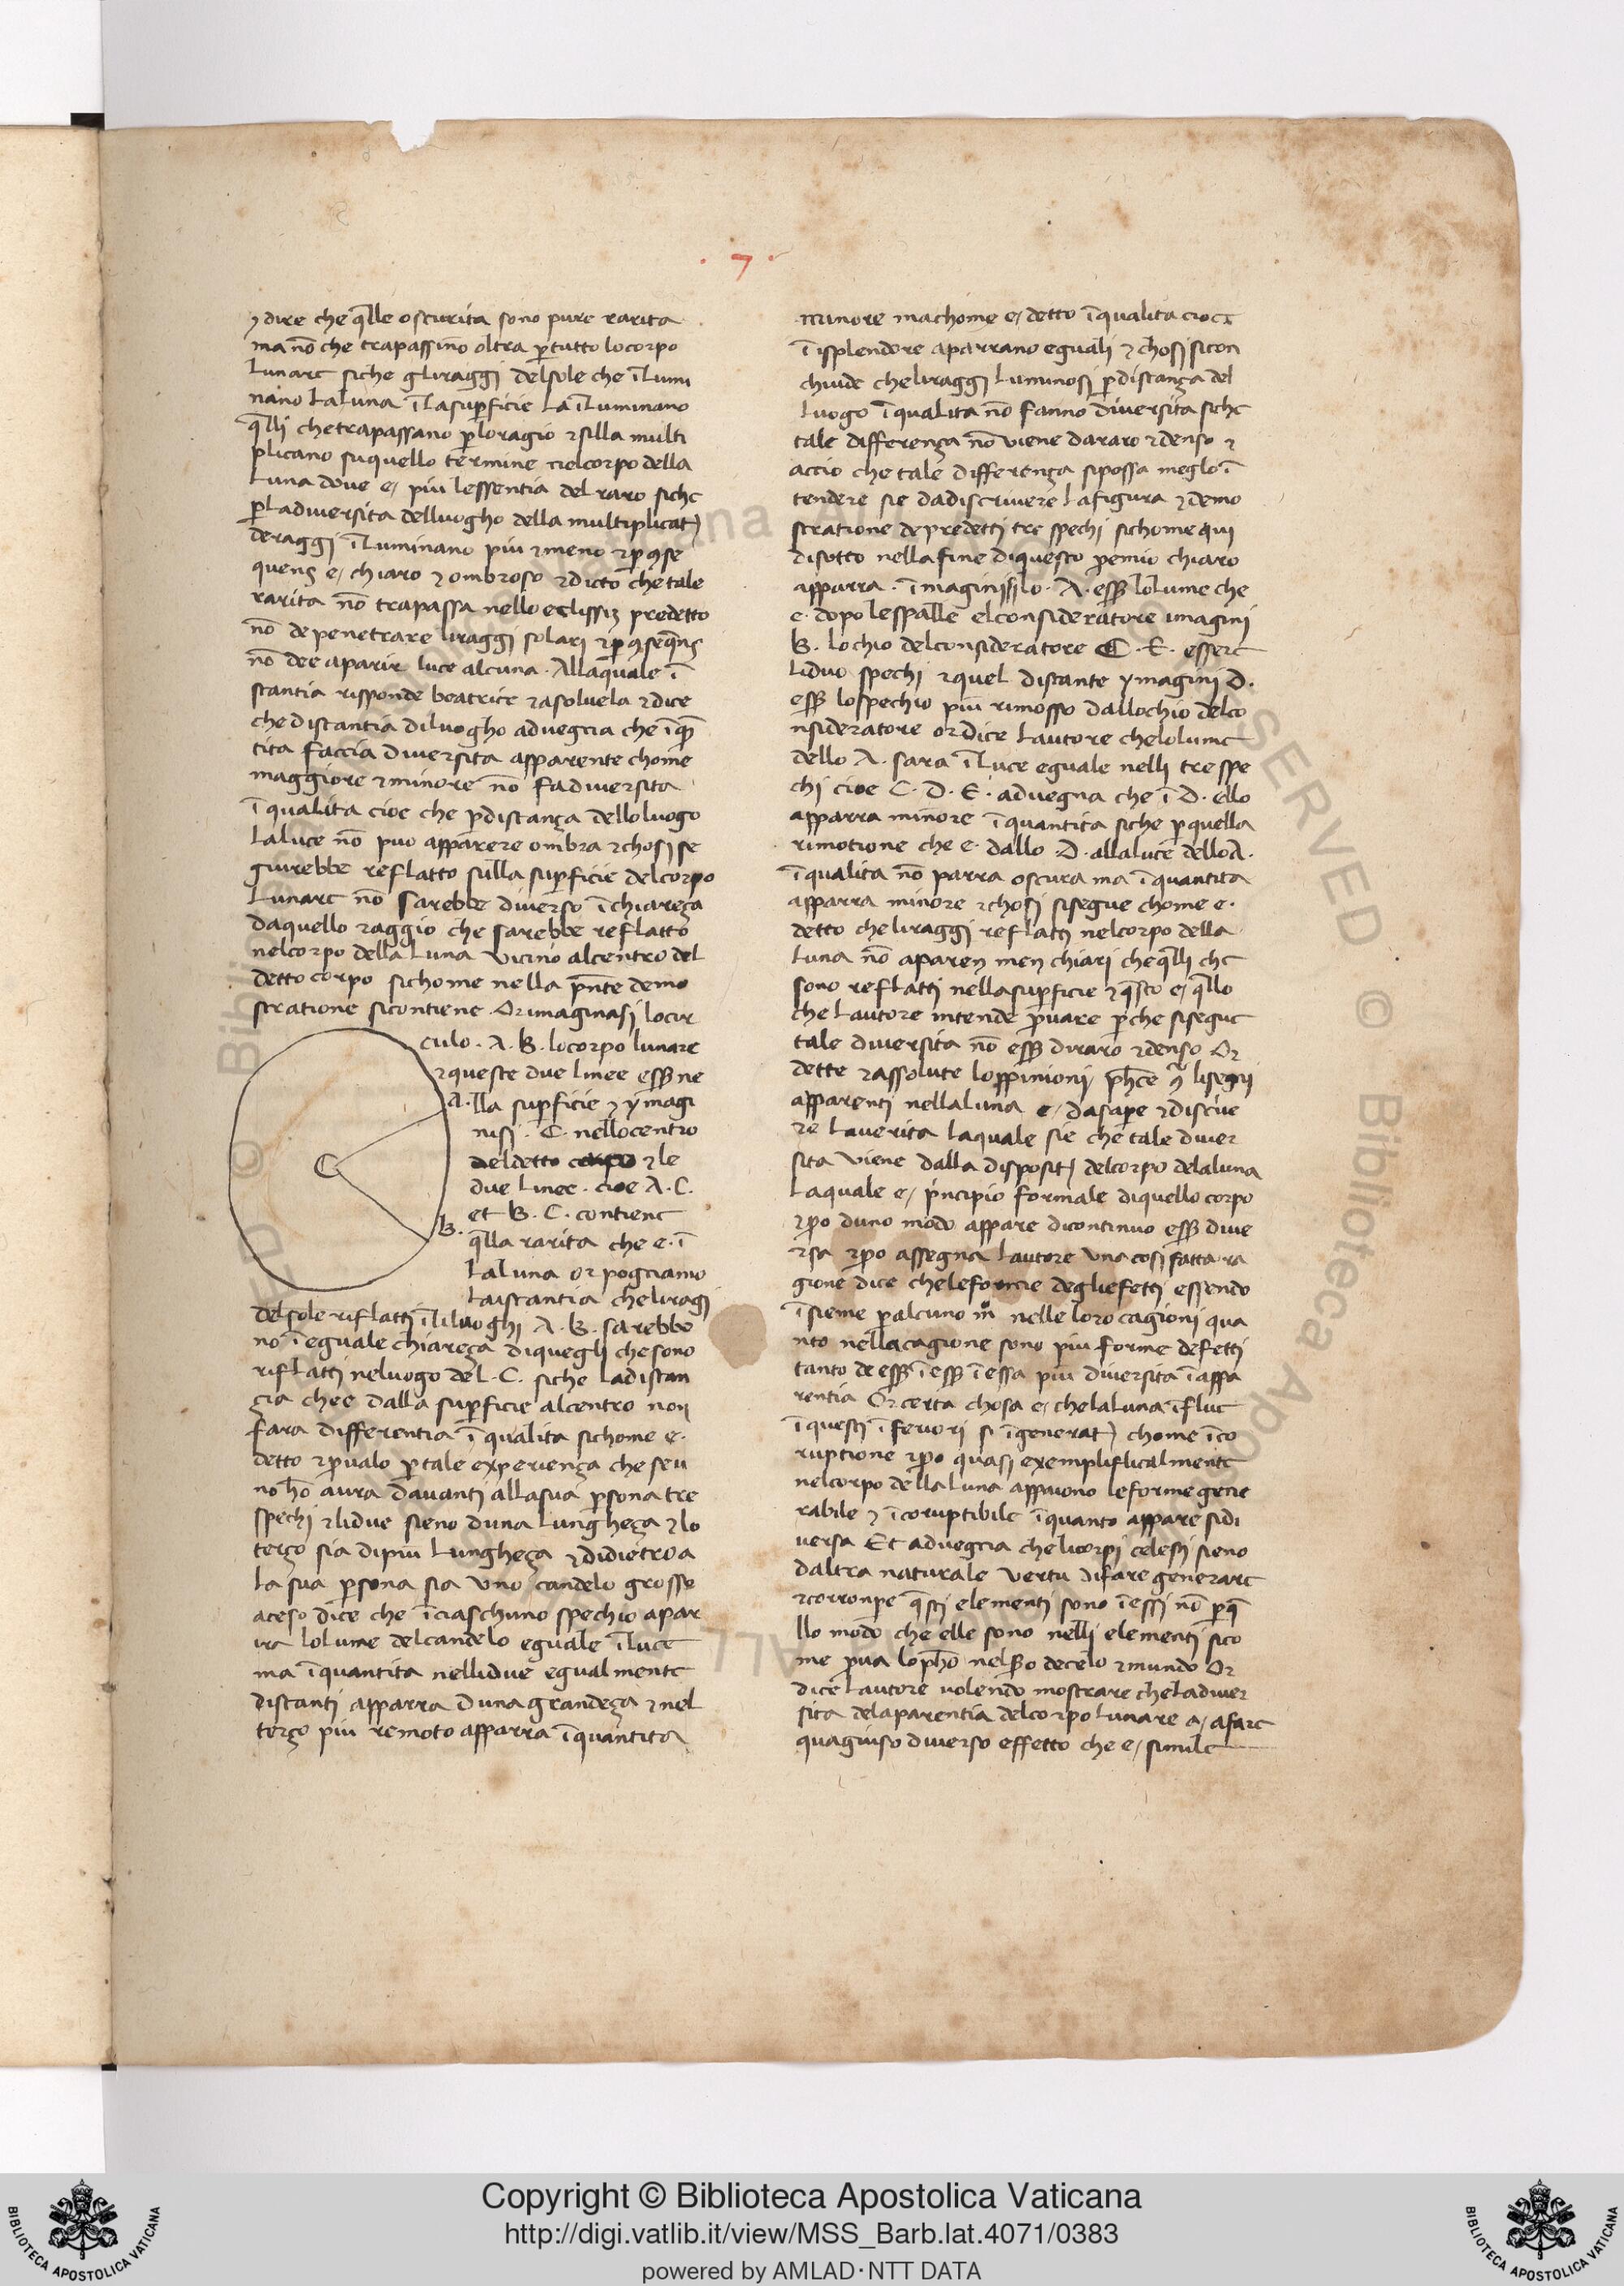 · 7 ·
⁊ dire che q̄lle oscurita sono pure rarita
ma nō che trapassino oltra ꝑ tutto lo corpo
lunare siche gli raggi del sole che īlumi
nano la luna ī la suꝑficie la īluminano
q̄lli che trapassano ꝑ lo ragio ⁊ silla multi
plicano su quello termine nel corpo della
luna dove e, piu lessentia del raro siche
ꝑ la diversita delluogho della multiplicat̄
de raggi īluminano piu ⁊ meno ⁊ ꝑ ꝯse
quens e, chiaro ⁊ ombroso ⁊ dicto che tale
rarita nō trapassa nello eclissiz predetto
nō de penetrare li raggi solari ⁊ ꝑ ꝯseq̄ns
nō dee aparir luce alcuna · Alla quale ī
stantia risponde beatrice ⁊ asoluela ⁊ dice
che distantia di luogho advegna che ī q̄
tita faccia diversita apparente chome
maggiore ⁊ minore nō fa diversita
ī qualita cioe che ꝑ distança dello luogo
la luce nō puo apparere ombra ⁊ chosi se
guirebbe reflatto sulla suꝑficie del corpo
lunare nō sarebbe diverso ī chiareça
da quello raggio che sarebbe reflatto
nel corpo della luna vicino al centro del
detto corpo sichome nella p̄nte demo
stratione si contiene · Or imaginasi lo cir
culo · A · B · lo corpo lunare
⁊ queste due linee ess̄ ne
lla suꝑficie ⁊ ymagi
nisi · C · nello centro
del detto corpo ⁊ le
due linee · cioe A · C ·
et B · C · contiene
q̄lla rarita che e · ī
la luna or pogniamo
la istantia che li ragi
del sole riflatti ī li luoghi A · B · sarebbo
no ī eguale chiareça di quegli che sono
riflatti nel uogo del · C · siche la distan
çia che e dalla suꝑficie al centro non
fara differentia ī qualita sichome e ·
detto ⁊ ꝓvalo ꝑ tale experiença che se u
no hō aura davanti alla sua ꝑsona tre
spechi ⁊ li due sieno duna lungheça ⁊ lo
terço sia di piu lungheça ⁊ di dietro a
la sua ꝑsona sia uno candelo grosso
aceso dice che ī ciaschuno spechio apar
ira lo lume del candelo eguale ī luce
ma ī quantita nelli due egualmente
distanti apparra duna grandeça ⁊ nel
terço piu remoto apparra ī quantita
A ·
B ·
C
minore ma chome e, detto ī qualita cioe
ī isplendore aparrano eguali ⁊ chosi si con
chiude che li raggi luminosi ꝑ distança del
luogo ī qualita nō fanno diversita siche
tale differença nō viene da raro ⁊ denso ⁊
accio che tale differença si possa meglo ī
tendere sie da discrivere la figura ⁊ demo
stratione de predetti tre spechi sichome qui
disotto nella fine di questo ꝓemio chiaro
apparra · ī maginisi lo · A · ess̄ lo lume che
e · dopo le spalle el consideratore imagini
B · lochio del consideratore C · E · essere
li duo spechi ⁊ quel distante ymagini D ·
ess̄ lo spechio piu rimosso dallochio del co
nsideratore or dice lautore che lo lume
dello A · sara ī luce eguale nelli tre spe
chi cioe C · D · E · advegna che ī D · ello
apparra minore ī quantita siche ꝑ quella
rimotione che e · dallo · D · alla luce dello A ·
ī qualita nō parra oscura ma ī quantita
apparra minore ⁊ chosi si segue chome e ·
detto che li raggi reflatti nel corpo della
luna nō aparen men chiari che q̄lli che
sono reflatti nella suꝑficie ⁊ q̄sto e, q̄llo
che lautore intende ꝓvare ꝑche si segue
tale diversita nō ess̄ di raro ⁊ denso Or
dette ⁊ assolute loppinioni ꝑche ꝯ li segni
apparenti nella luna e, da saꝑe ⁊ discive
re la verita la quale sie che tale diver
sita viene dalla disposit̄ del corpo dela luna
la quale e, principio formale di quello corpo
⁊ ꝑo duno modo appare di continuo ess̄ dive
rsa ⁊ ꝑo assegna lautore una cosi fatta ra
gione dice che le forme degli efetti essendo
ī sieme ꝑ alcuno mō nelle loro cagioni qua
nto nella cagione sono piu forme defetti
tanto de ess̄ ī ess̄ ī essa piu diversita ī appa
rentia Or certa chosa e, che la luna ī flue
ī questi ī feriori si ī generat̄ chome ī co
ruptione ⁊ ꝑo quasi exemplificalmente
nel corpo della luna appaiono le forme gene
rabile ⁊ ī coruptibile ī quanto appare si di
versa Et advegna che li corpi celesti sieno
daltra naturale vertu di fare generare
⁊ corronpe q̄sti elementi sono ī essi nō ꝑ q̄
llo modo che elle sono nelli elementi sico
me ꝓva lo ph̄o nel de celo ⁊ mundo Or
dice lautore volendo mostrare che la diver
sita dela parentia del corpo lunare a, a fare
qua giuso diverso effetto che e, simile
Copyright © Biblioteca Apostolica Vaticana
http://digi.vatlib.it/view/MSS_Barb.lat.4071/0383
powered by AMLAD·NTT DATA
BIBLIOTECA APOSTOLICA VATICANA
BIBLIOTECA APOSTOLICA VATICANA